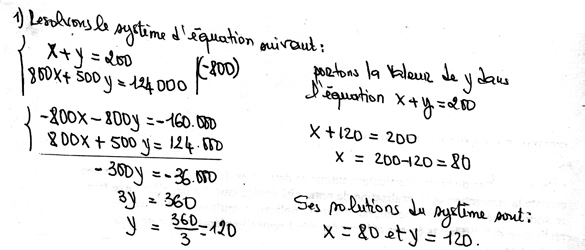 1) Résolvons le système d'équation suivant :
x + y = 200 | (-800)
800x + 500y = 124 000
-800x - 800y = -160.000
800x + 500y = 124.000
- 300y = -36.000
3y = 360
y = 360/3 = 120
portons la valeur de y dans
l'équation x + y = 200
x + 120 = 200
x = 200 - 120 = 80
Ses solutions du système sont :
x = 80 et y = 120.